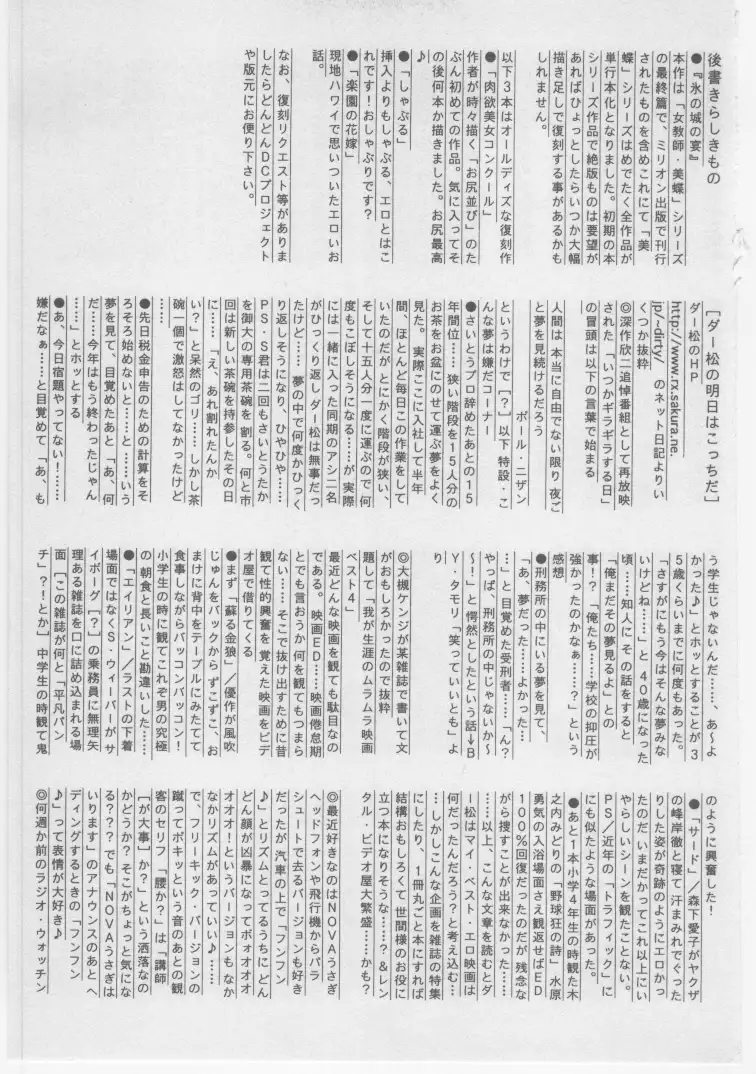 後書きらしきもの
●『氷の城の宴』
本作は「女教師・美蝶」シリーズ
の最終篇で、ミリオン出版で刊行
されたものを含めこれにて「美
蝶」シリーズはめでたく全作品が
単行本化となりました。初期の本
シリーズ作品で絶版ものは要望が
あればひょっとしたらいつか大幅
描き足しで復刻する事があるかも
しれません。
以下3本はオールディズな復刻作
●「肉欲美女コンクール」
作者が時々描く「お尻並び」のた
ぶん初めての作品。気に入ってそ
の後何本か描きました。お尻最高
♪
●「しゃぶる」
挿入よりもしゃぶる、エロとはこ
れです！おしゃぶりです？
●「楽園の花嫁」
現地ハワイで思いついたエロいお
話。
なお、復刻リクエスト等がありま
したらどんどんDCプロジェクト
や版元にお便り下さい。
［ダー松の明日はこっちだ］
ダー松のHP
http://www.rx.sakura.ne.
jp/~dirty/ のネット日記よりい
くつか抜粋
◎深作欣二追悼番組として再放映
された「いつかギラギラする日」
の冒頭は以下の言葉で始まる
人間は 本当に自由でない限り 夜ご
と夢を見続けるだろう
ポール・ニザン
というわけで［？］以下 特設・こ
んな夢は嫌だコーナー
●さいとうプロ辞めたあとの15
年間位……狭い階段を15人分の
お茶をお盆にのせて運ぶ夢をよく
見た。実際ここに入社して半年
間、ほとんど毎日この作業をして
いたのだが とにかく階段が狭い、
そして十五人分一度に運ぶので何
度もこぼしそうになる……が 実際
には一緒に入った同期のアシ二名
がひっくり返しダー松は無事だっ
たけど…… 夢の中で何度かひっく
り返しそうになり、ひやひや……
PS・S君は二回もさいとうたか
を御大の専用茶碗を 割る。何と市
回は新しい茶碗を持参したその日
に……「え、あれ割れたんか
い？」と呆然のゴリ……しかし茶
碗一個で激怒はしてなかったけど
……
●先日税金申告のための計算をそ
ろそろ始めないと……と……いう
夢を見て、目覚めたあと「あ、何
だ……今年はもう終わったじゃん
……」とホッとする
●あ、今日宿題やってない！……
嫌だなぁ……と目覚めて「あ、も
う学生じゃないんだ……、あ～よ
かった♪」とホッとすることが3
5歳くらいまでに何度もあった。
「さすがにもう今はそんな夢みな
いけどね……」と 40歳になった
頃……知人に その話をすると
「俺まだその夢見るよ」との
事！？「俺たち……学校の抑圧が
強かったのかなぁ……？」という
感想
●刑務所の中にいる夢を見て、
「あ、夢だった……よかった…
…」と目覚めた受刑者……「ん？
やっぱ、刑務所の中じゃないか～
～！」と愕然としたという話→B
Y・タモリ「笑っていいとも」よ
り
◎大槻ケンジが某雑誌で書いて文
がおもしろかったので抜粋
題して「我が生涯のムラムラ映画
ベスト4」
最近どんな映画を観ても駄目なの
である。映画ED……映画倦怠期
とでも言おうか 何を観てもつまら
ない……そこで抜け出すために昔
観て性的興奮を覚えた映画をビデ
オ屋で借りてくる
●まず「蘇る金狼」／優作が風吹
じゅんをバックからずこずこ、お
まけに背中をテーブルにみたてて
食事しながらバッコンバッコン！
小学生の時に観てこれぞ男の究極
の朝食と長いこと勘違いした……
●「エイリアン」／ラストの下着
場面ではなくS・ウィーバーがサ
イボーグ［？］の乗務員に無理矢
理ある雑誌を口に詰め込まれる場
面［この雑誌が何と「平凡パン
チ」？！とか］中学生の時観て鬼
のように興奮した！
●「サード」／森下愛子がヤクザ
の峰岸徹と寝て 汗まみれでぐった
りした姿が奇跡のようにエロかっ
たのだ いまだかつてこれ以上にい
やらしいシーンを観たことない。
PS／近年の「トラフィック」に
にも似たような場面があった。
●あと1本小学4年生の時観た木
之内みどりの「野球狂の詩」水原
勇気の入浴場面さえ観返せばED
100％回復だったのだが 残念な
がら捜すことが出来なかった……
……以上、こんな文章を読むとダ
ー松はマイ・ベスト・エロ映画は
何だったんだろう？と考え込む…
…しかしこんな企画を雑誌の特集
にしたり、1冊丸ごと本にすれば
結構おもしろくて 世間様のお役に
立つ本になりそうな……？＆レン
タル・ビデオ屋大繁盛……かも？
◎最近好きなのはNOVAうさぎ
ヘッドフォンや飛行機からパラ
シュートで去るバージョンも好き
だったが 汽車の上で「フンフン
♪」とリズムとってるうちに どん
どん顔が凶暴になってボォォォォ
オオオ！というバージョンも なか
なかリズムがあっていい♪……
で、フリーキック・バージョンの
蹴ってボキッという音のあとの観
客のセリフ 「腰か？」は「講師
［が大事］か？」という洒落なの
かどうか？そこがちょっと気にな
る？？？でも「NOVAうさぎは
いります」のアナウンスのあと ヘ
ディングするときの「フンフン
♪」って表情が大好き♪
◎何週か前のラジオ・ウォッチン